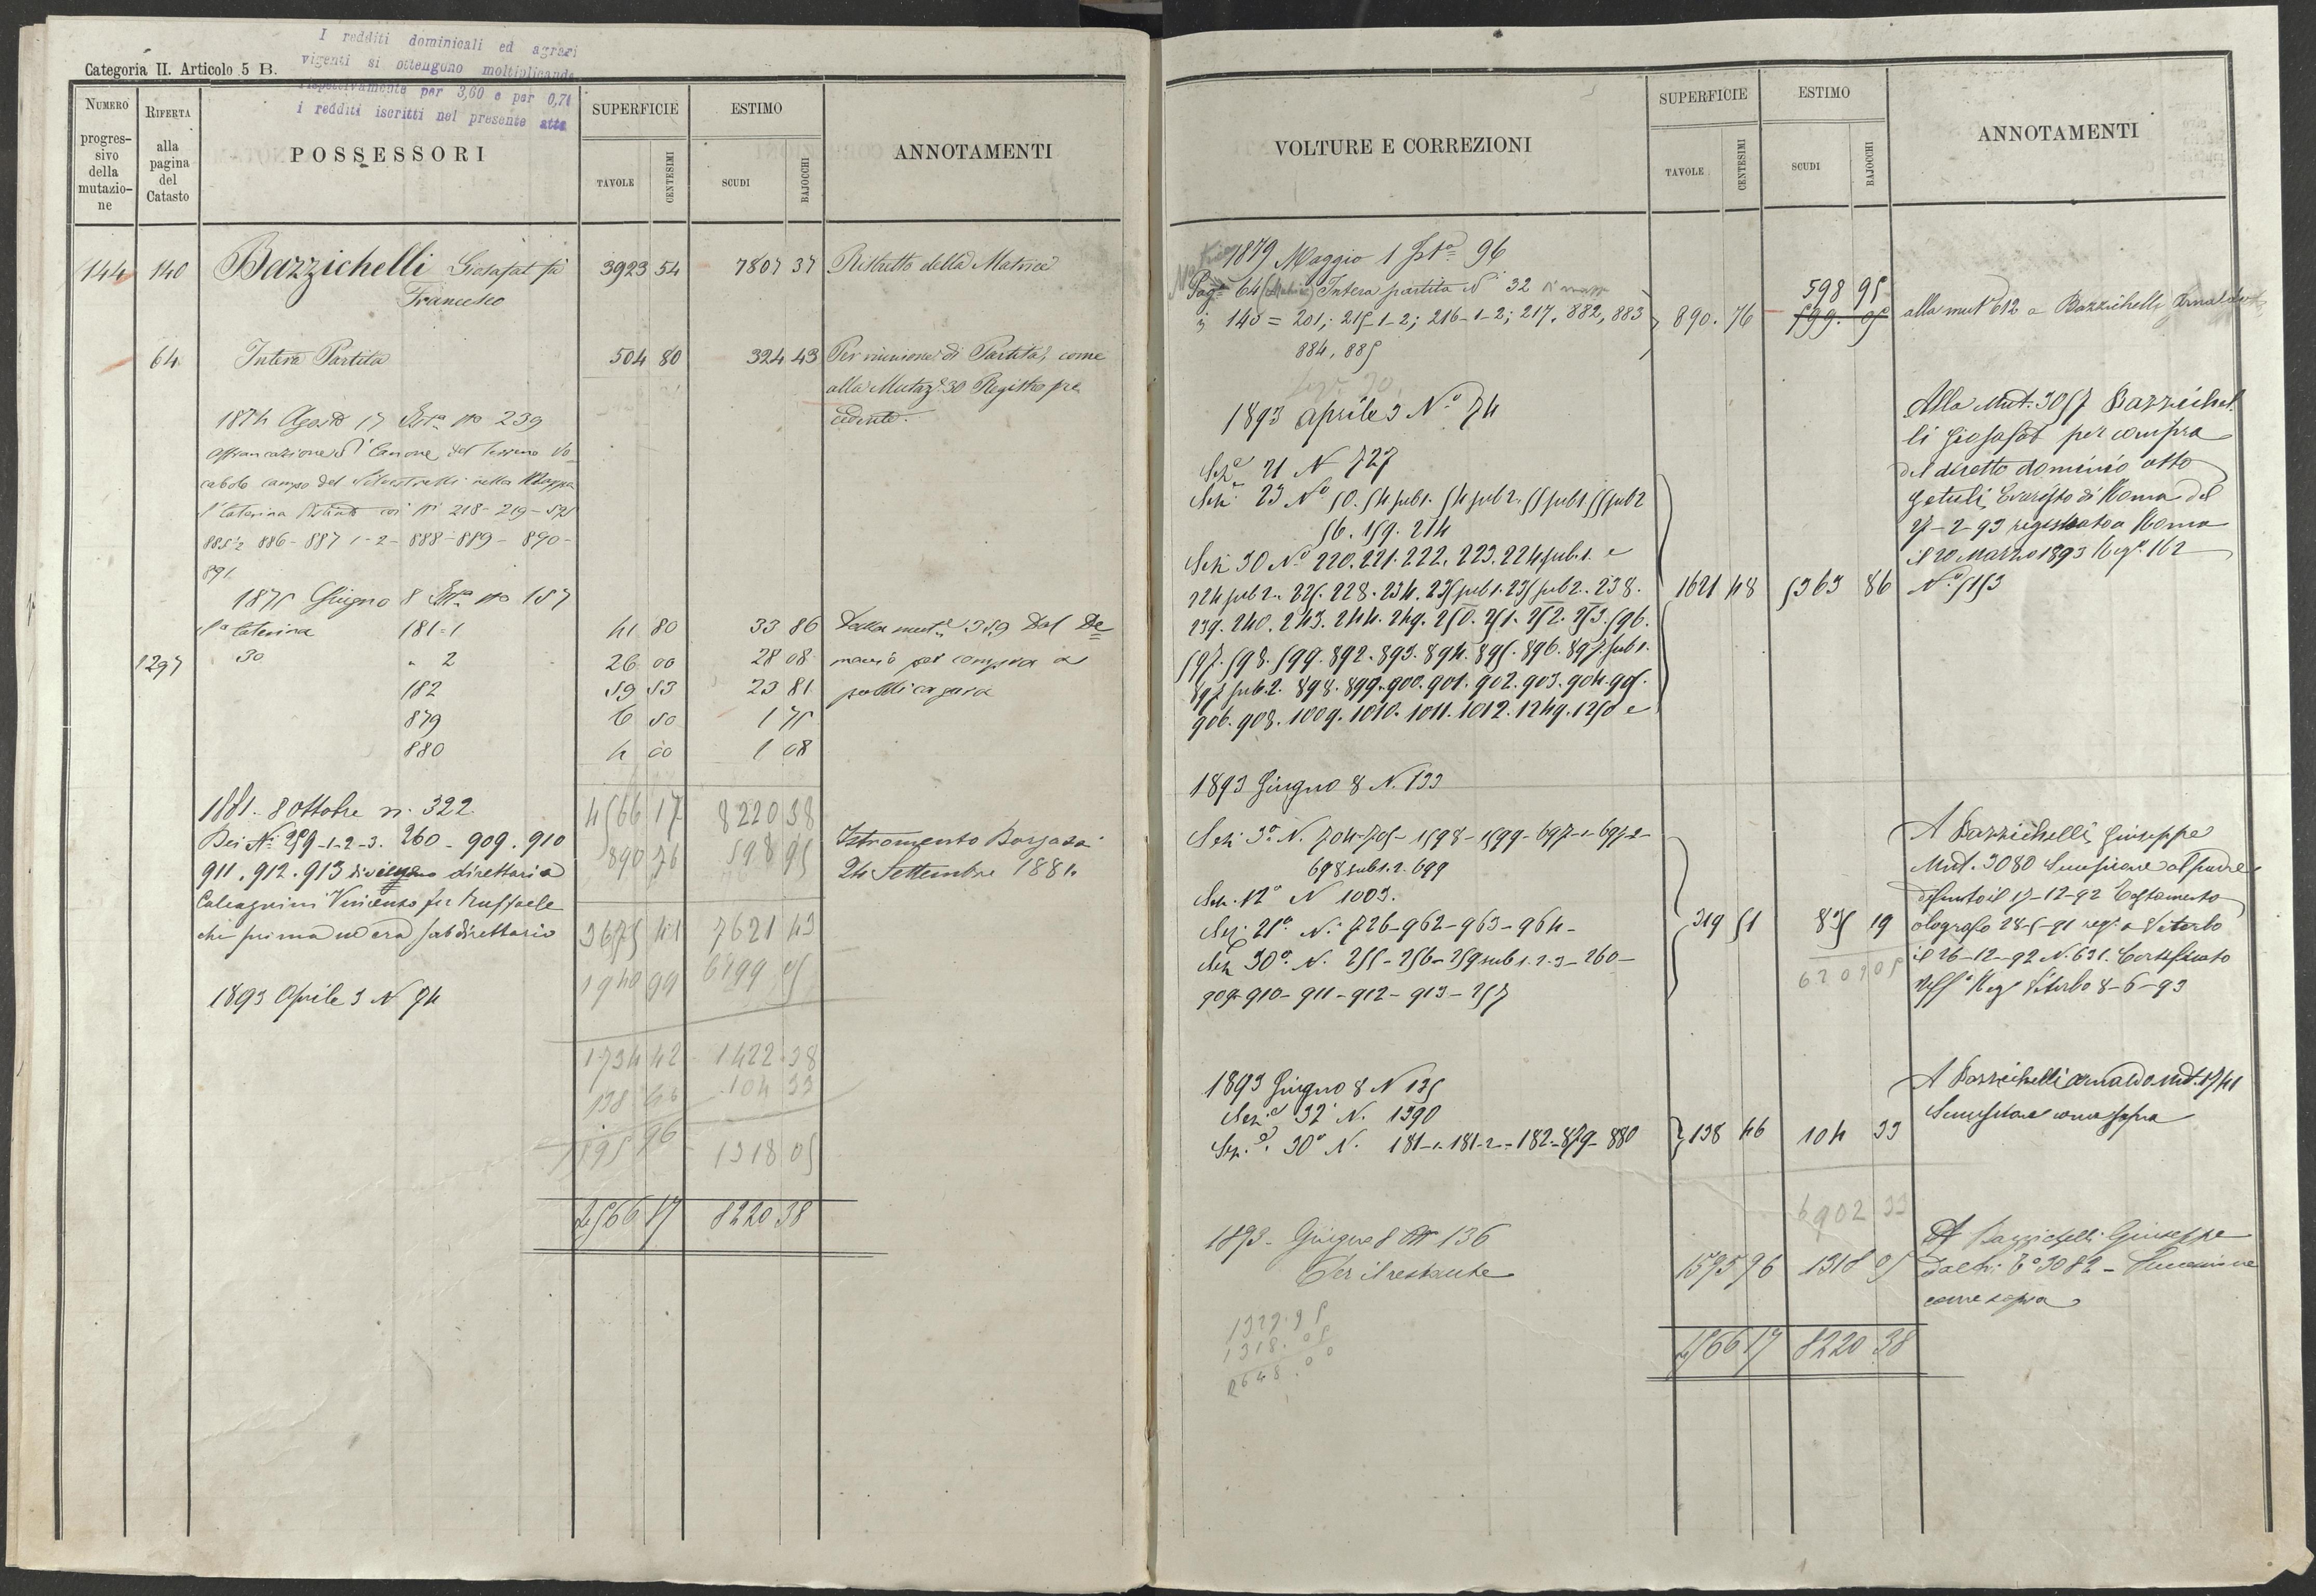 I redditi dominicali ed agrari
vigenti si ottengono moltiplicando
rispettivamente per 3,60 e per 0,71
i redditi iscritti nel presente atto
Categoria II. Articolo 5 B.
NUMERO progressivo della mutazione
RIFERTA alla pagina del Catasto
POSSESSORI
SUPERFICIE
TAVOLE
CENTESIMI
ESTIMO
SCUDI
BAJOCCHI
ANNOTAMENTI
144 140 Bazzichelli Giosafat fu 3923 54 7807 37 Ristretto della Matrice
Francesco
64 Intera Partita 504 80 324 43 Per riunione di Partita, come
alla Mutaz. 30 Registro pre
cedente.
1874 Agosto 17 No 239
affrancazione Canone del terreno Vo
cabolo campo del nella Mappa
Caterina 218 - 219 -
886 - 887 1-2 - 888 - 889 - 890 -
891
1875 Giugno 8 No 157
Caterina 181=1 41 80 33 86 Dalla mut. 359 Dal De
1297 30 " 2 26 00 28 08 manio per compra a
182 59 53 23 81 pubblica gara
879 6 50 1 75
880 4 00 1 08
1881. 8 Ottobre n. 322 4566 17 8220 38
Dei Ni 259-1-2-3. 260 - 909. 910 890 76 598 95 Istromento Borgassi
911. 912. 913 divienne direttario 24 Settembre 1881.
Calcagnini Vincenzo fu Raffaele
che prima ne era subdirettario 3675 41 7621 43
1940 99 6199 05
1893 Aprile 3 N 74
1734 42 1422 38
138 46 104 33
1595 96 1318 05
4566 17 8220 38
VOLTURE E CORREZIONI
SUPERFICIE
TAVOLE
CENTESIMI
ESTIMO
SCUDI
BAJOCCHI
ANNOTAMENTI
1879 Maggio 1 96
Pag. 64 (Matrice) Intera partita N 32 di mappa 598 95
140 = 201; 215-1-2; 216-1-2; 217, 882, 883 890. 76 599. 05 alla mut N 612 a Bazzichelli Arnaldo
884, 885
1893 aprile 3 No 74
Sez. 21 N 727
Sez. 23 No 50. 54 sub 1. 54 sub 2. 55 sub 1 55 sub 2
56. 159. 214
Sez 30 No 220. 221. 222. 223. 224 sub. 1. e
224 sub 2. 225. 228. 234. 235 sub 1. 235 sub 2. 238. 1621 48 5363 86
239. 240. 243. 244. 249. 250. 251. 252. 253. 596.
597. 598. 599. 892. 893. 894. 895. 896. 897 sub 1.
897 sub. 2. 898. 899. 900. 901. 902. 903. 904. 905.
906. 908. 1009. 1010. 1011. 1012. 1249. 1250 e
Alla Mut. 3057 Bazzichel
li Giosafat per compra
del diretto dominio atto
Getuli Evaristo di Roma del
27-2-93 registrato a Roma
il 20 Marzo 1893 Reg. 162
No 5153
1893 Giugno 8 N. 133
Sez. 3a N. 704-705-1598-1599-697-1-697-2-
698 sub 1. 2. 699
Sez. 12a N 1003.
Sez. 21a N. 726-962-963-964- 319 51 835 19
Sez 30a. N. 255-256-259 sub 1. 2. 3-260-
909-910-911-912-913-257
A Bazzichelli Giuseppe
Mut. 3080 Successione al padre
defunto il 17-12-92 Testamento
olografo 28-5-91 reg. a Viterbo
il 26-12-92 N. 631. Certificato
Uff. Reg Viterbo 8-6-93
1893 Giugno 8 N 135
Sez. 32 N. 1390
Sez. 30a N. 181-1. 181-2-182-879-880 138 46 104 33
A Bazzichelli Arnaldo Mut. 1741
Successione come sopra
6902 33
1893 - Giugno 8 No 136
Per il restante 1595 96 1318 05
A Bazzichelli Giuseppe
3082 - Successione
come sopra
1329.95
1318.05
2648.00
4566 17 8220 38